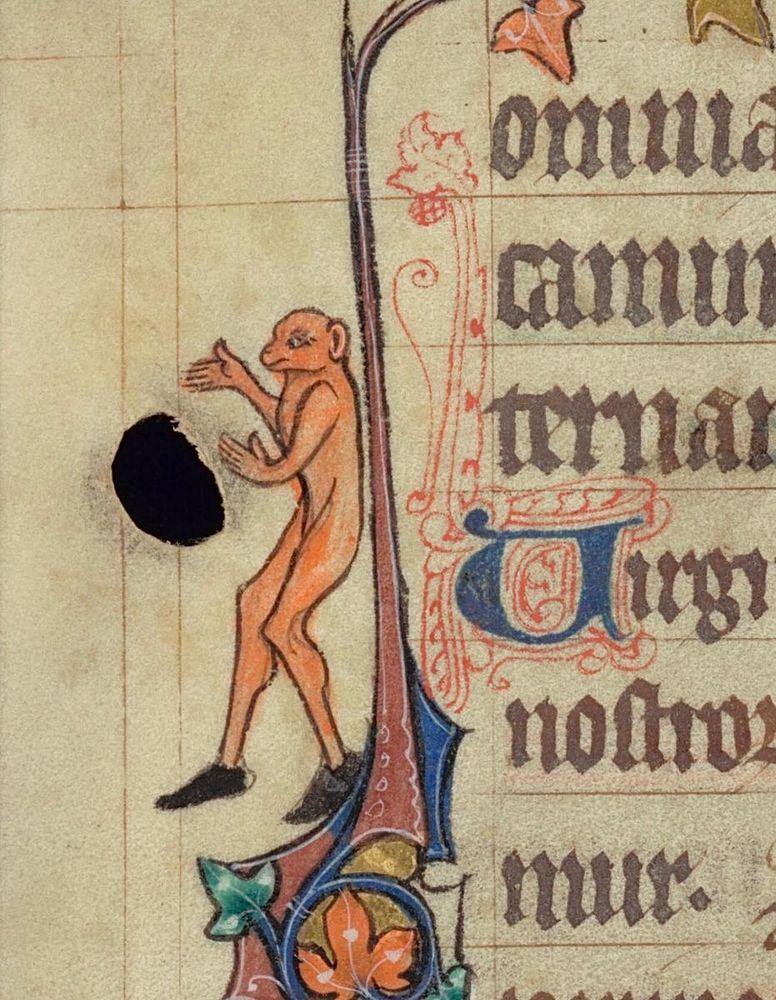 omnia
camun
ternar
Uirgi
nostror
mur.